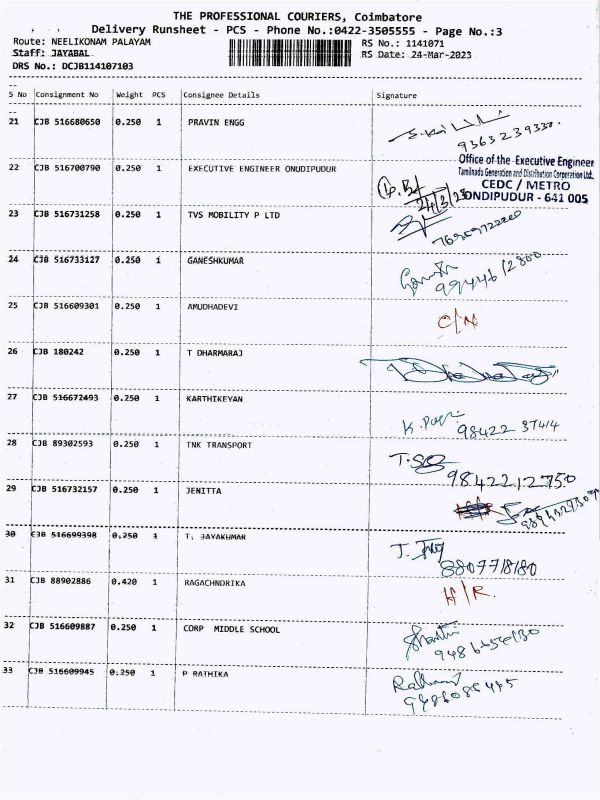 THE PROFESSIONAL COURIERS, Coimbatore
Delivery Runsheet - PCS - Phone No.:0422-3505555 - Page No.:3
Route: NEELIKONAM PALAYAM RS No.: 1141071
Staff: JAYABAL RS Date: 24-Mar-2023
DRS No.: DCJB114107103
S No Consignment No Weight PCS Consignee Details Signature
21 CJB 516680650 0.250 1 PRAVIN ENGG
9363239330.
22 CJB 516700790 0.250 1 EXECUTIVE ENGINEER ONUDIPUDUR
Office of the Executive Engineer
Tamilnadu Generation and Distribution Corporation Ltd.
CEDC / METRO
ONDIPUDUR - 641 005
24/3/23
23 CJB 516731258 0.250 1 TVS MOBILITY P LTD
24 CJB 516733127 0.250 1 GANESHKUMAR
25 CJB 516609301 0.250 1 AMUDHADEVI
C/N
26 CJB 180242 0.250 1 T DHARMARAJ
27 CJB 516672493 0.250 1 KARTHIKEYAN
98422 37414
28 CJB 89302593 0.250 1 TNK TRANSPORT
9842212750
29 CJB 516732157 0.250 1 JENITTA
30 CJB 516699398 0.250 1 T. JAYAKUMAR
8807718180
31 CJB 88902886 0.420 1 RAGACHNDRIKA
H/R.
32 CJB 516609887 0.250 1 CORP MIDDLE SCHOOL
33 CJB 516609945 0.250 1 P RATHIKA